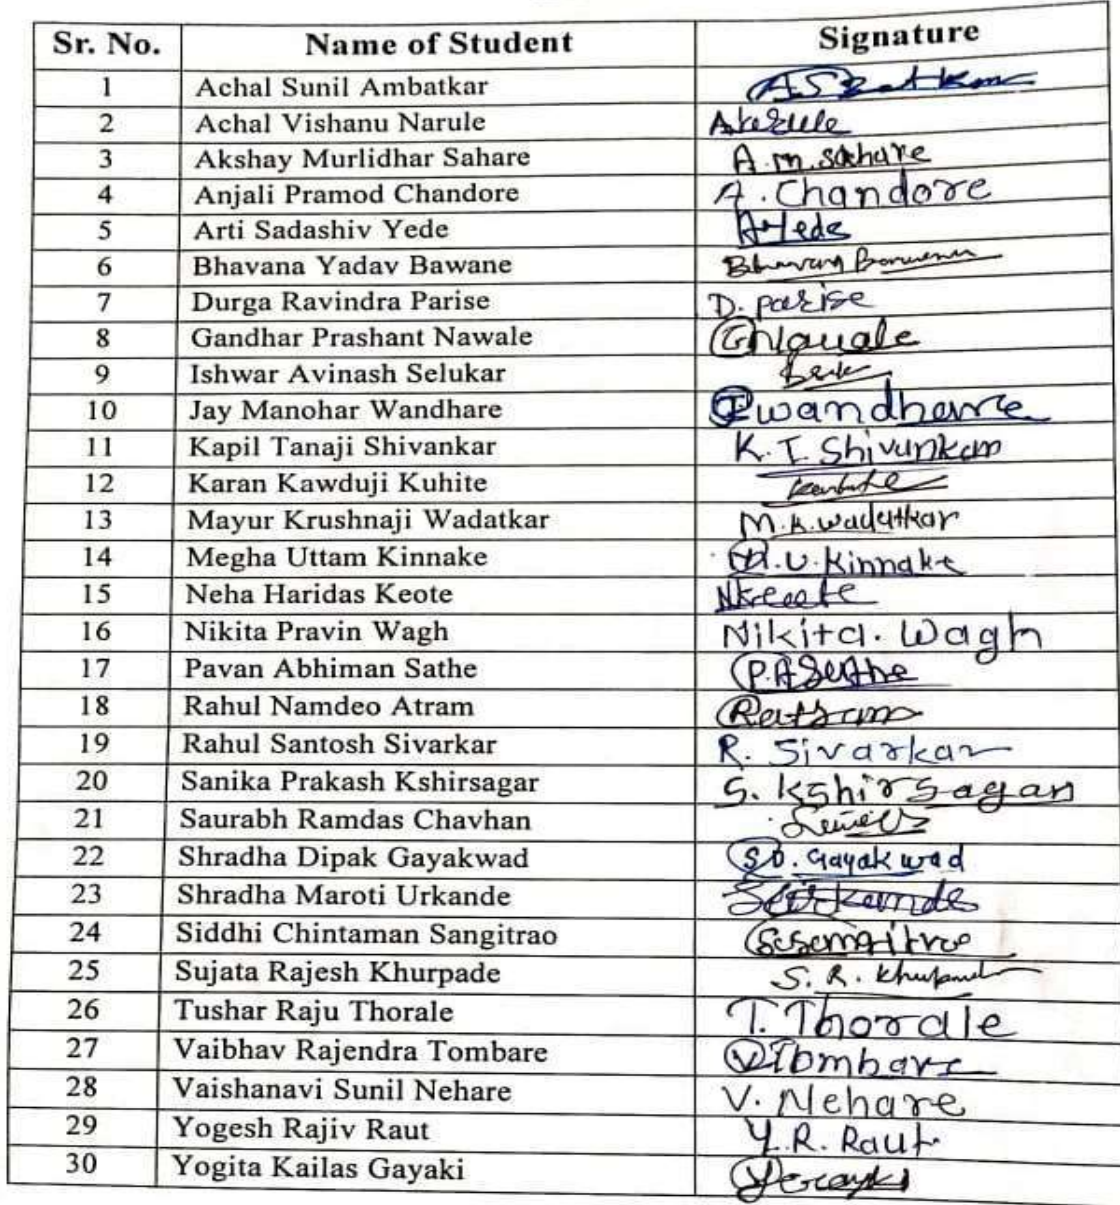 Sr. No. Name of Student Signature
1 Achal Sunil Ambatkar
2 Achal Vishanu Narule
3 Akshay Murlidhar Sahare A.M. Sahare
4 Anjali Pramod Chandore A. Chandore
5 Arti Sadashiv Yede AYede
6 Bhavana Yadav Bawane
7 Durga Ravindra Parise D. Parise
8 Gandhar Prashant Nawale GNawale
9 Ishwar Avinash Selukar
10 Jay Manohar Wandhare
11 Kapil Tanaji Shivankar K. T. Shivankar
12 Karan Kawduji Kuhite
13 Mayur Krushnaji Wadatkar M.K. Wadatkar
14 Megha Uttam Kinnake M.U. Kinnake
15 Neha Haridas Keote
16 Nikita Pravin Wagh Nikita. Wagh
17 Pavan Abhiman Sathe P.A Sathe
18 Rahul Namdeo Atram
19 Rahul Santosh Sivarkar R. Sivarkar
20 Sanika Prakash Kshirsagar S. Kshirsagar
21 Saurabh Ramdas Chavhan
22 Shradha Dipak Gayakwad S.D. Gayakwad
23 Shradha Maroti Urkande
24 Siddhi Chintaman Sangitrao
25 Sujata Rajesh Khurpade S. R. Khurpade
26 Tushar Raju Thorale T. Thorale
27 Vaibhav Rajendra Tombare V Tombare
28 Vaishanavi Sunil Nehare V. Nehare
29 Yogesh Rajiv Raut Y.R. Raut
30 Yogita Kailas Gayaki